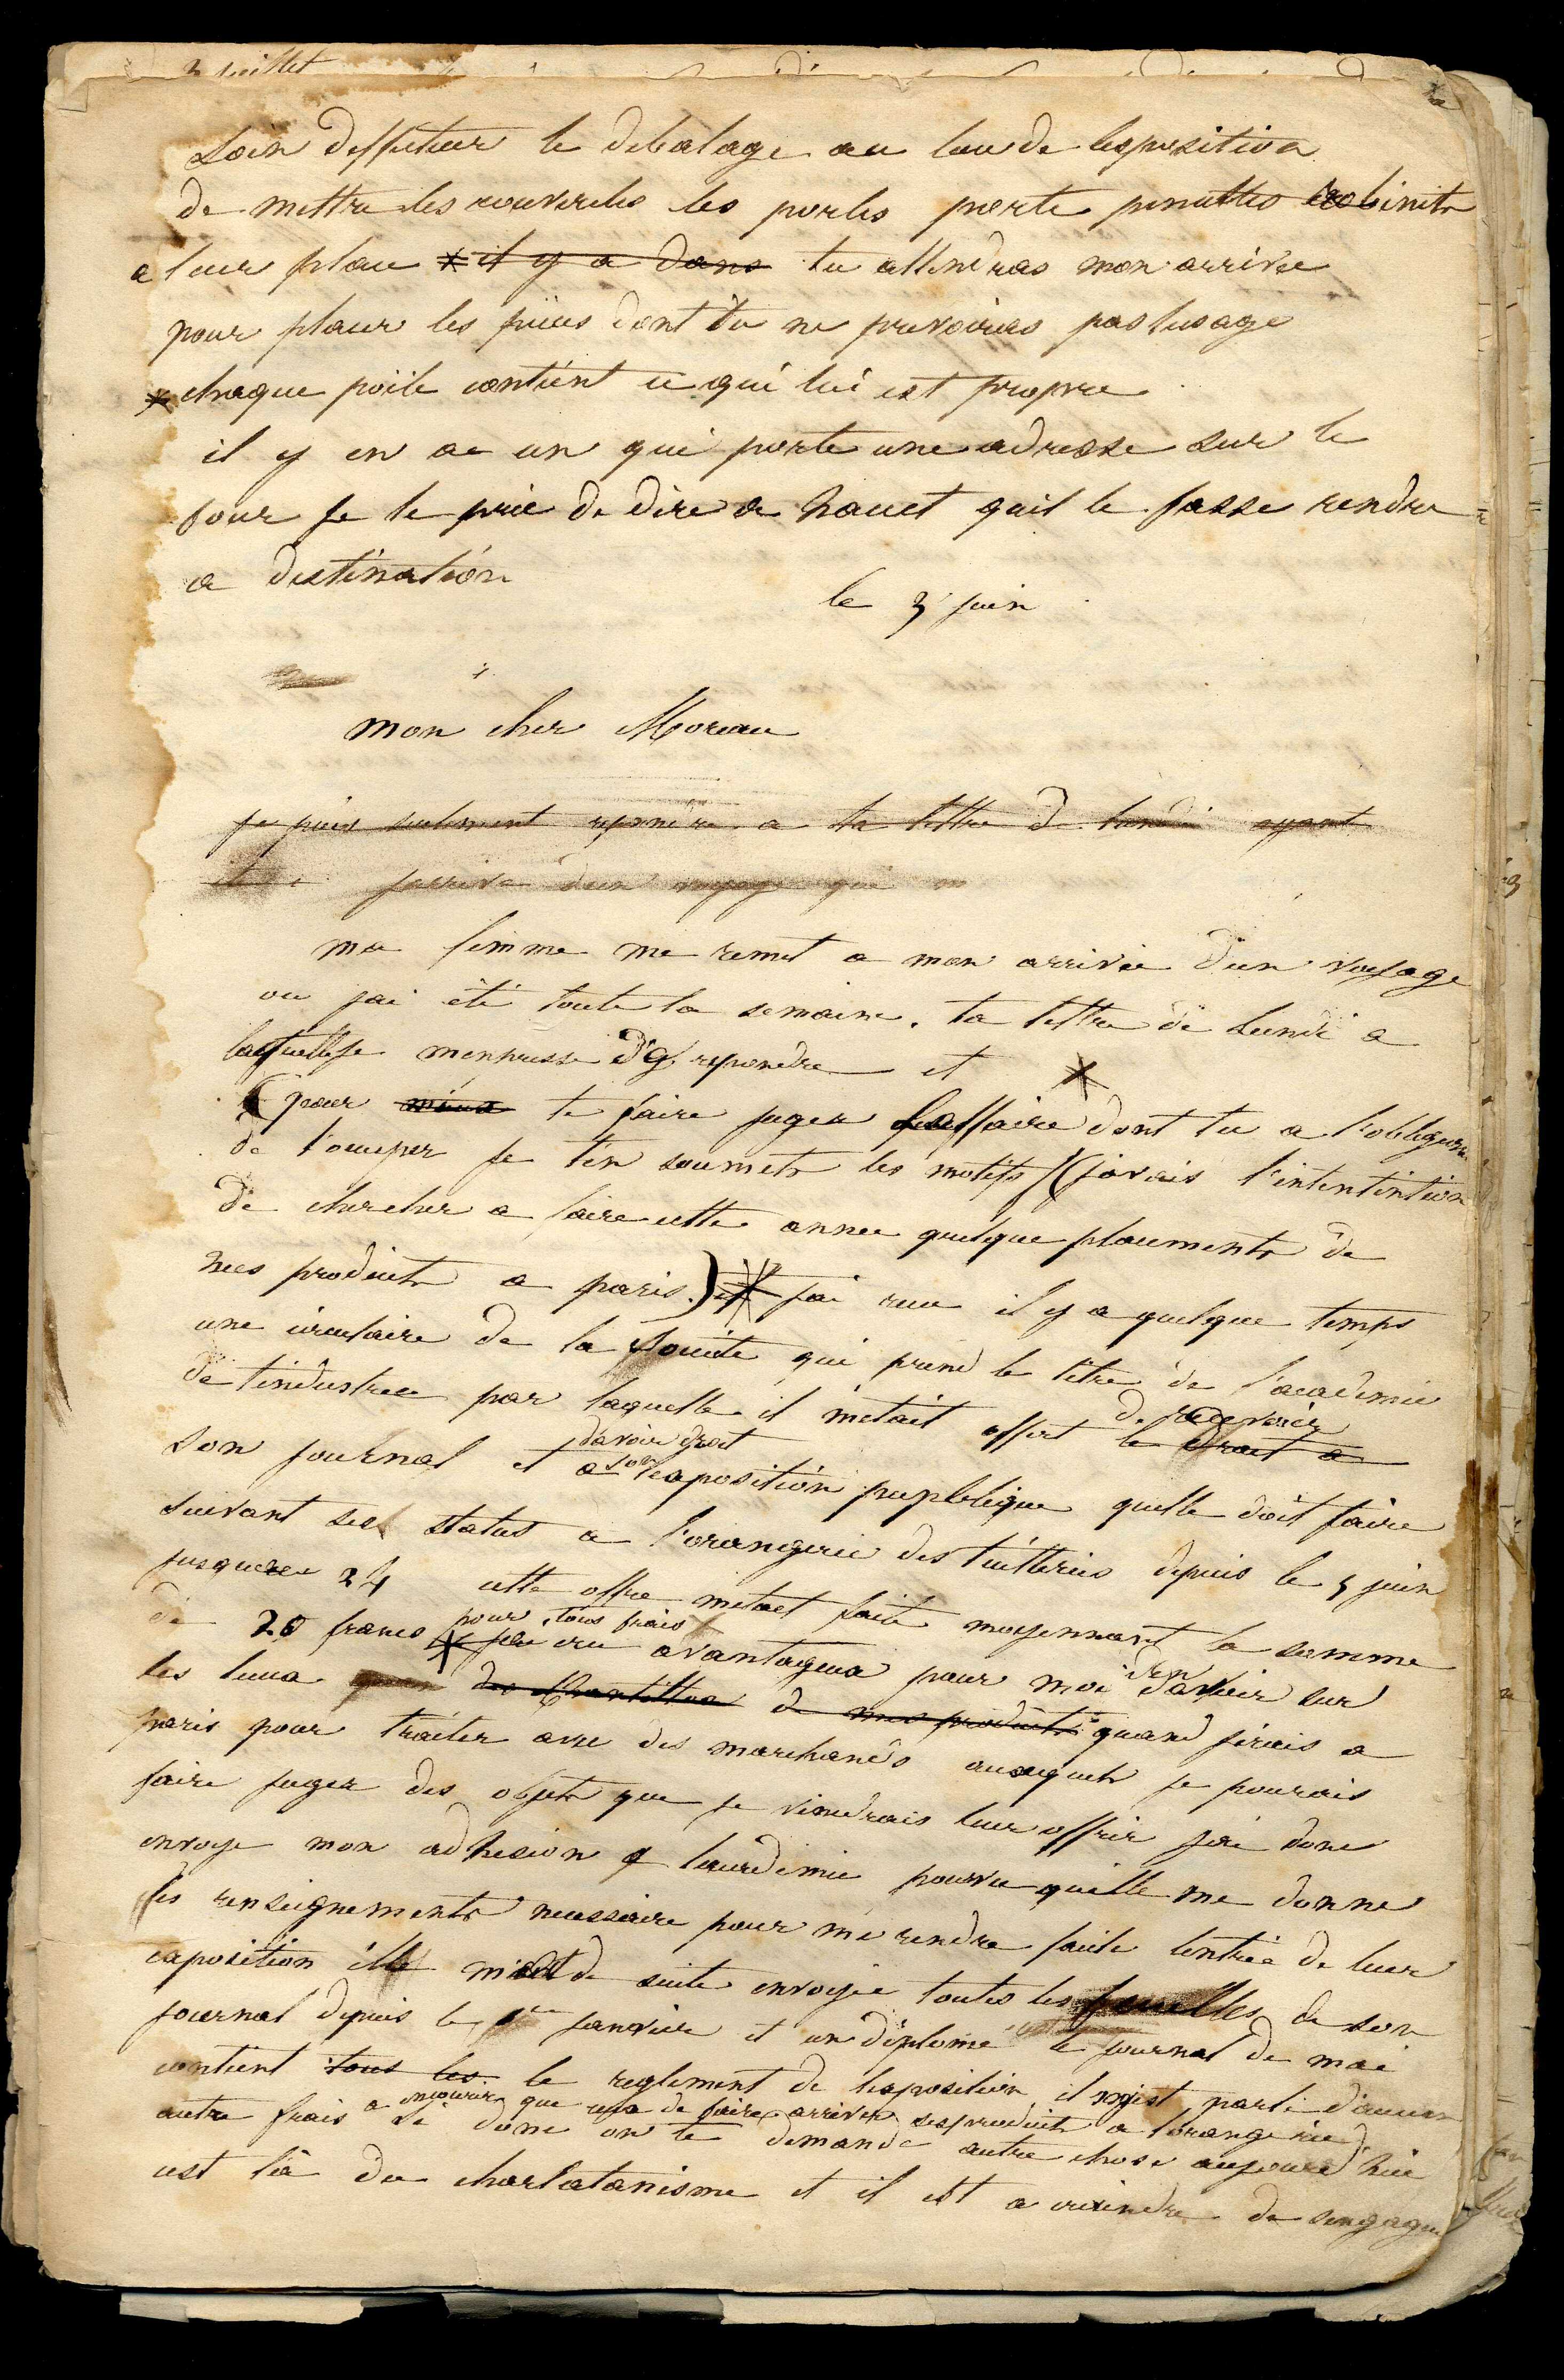 2 juillet
Soin deffectuer le debalage au lieu de lesposition
de mettre les couvercles les portes porte pincettes robinets
a leur place * il y a dans tu attendras mon arrivée
pour placer les pièces dont tu ne prevoiras pas lusage
* chaque poile contient ce qui lui est propre
il y en a un qui porte une adresse sur le
four je te prie de dire a hauet quil le fasse rendre
a destination
le 3 juin
mon cher Moreau
je puis seulement repondre a ta lettre de lundi ayant
jarrive dun voyage qui
ma femme me remet a mon arrivée d'un voyage
ou jai été toute la semaine. ta lettre de Lundi a
laquelle je m'enpresse d'y repondre et *
(pour mieux te faire juger laffaire dont tu a l'obligence
de t'occuper je t'en soumets les motifs) (javais l'intentintion
de chercher a faire cette année quelque placements de
mes produits a paris.) * jai recu il y a quelque temps
une circulaire de la Societe qui prend le titre de l'academie
de l'industrie par laquelle il m'etait offert le droit a
de recevoir
son journal et a son exposition pupblique quelle doit faire
davoir droit
suivant ses status a l'orangerie des tuilleries depuis le 5 juin
jusquau 24 cette offre m'etaet faite moyennant la somme
de 20 francs * jai cru avantageux pour moi d'avoir sur
pour tous frais
d'en
les lieux des echantillon de mes produits quand j'irais a
paris pour traiter avec des marchands auxquels je pourais
faire juger des objets que je viendrais leur offrir jai donc
envoye mon adhesion a lacademie pourvu quelle me donne
les renseignements necessaire pour me rendre facile lentrée de leur
exposition elle m'a de suite envoyée toutes les feuilles de son
journal depuis le 1er janvier et un diplome le journal de mai
contient tous les le reglement de lexposition il n'y est parlé d'aucun
autre frais a encourir que ceux de faire arriver ses produits a l'orangerie
Si donc on te demande autre chose aujourd'hui
cest là du charlatanisme et il est a craindre de sengager